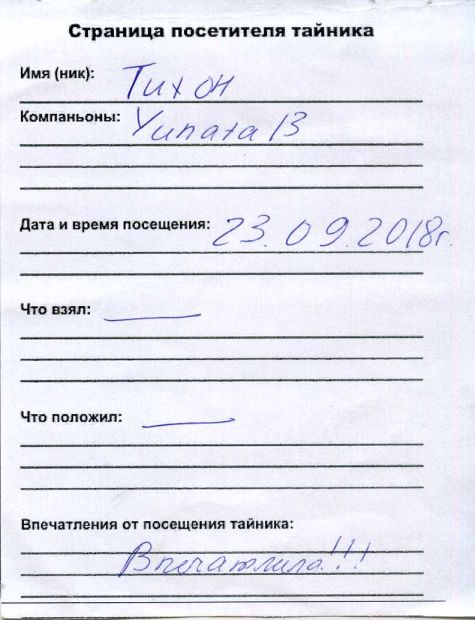 Страница посетителя тайника
Имя (ник): Тихон
Компаньоны: Yunata 13
Дата и время посещения: 23.09.2018г.
Что взял: —
Что положил: —
Впечатления от посещения тайника:
Впечатлило!!!